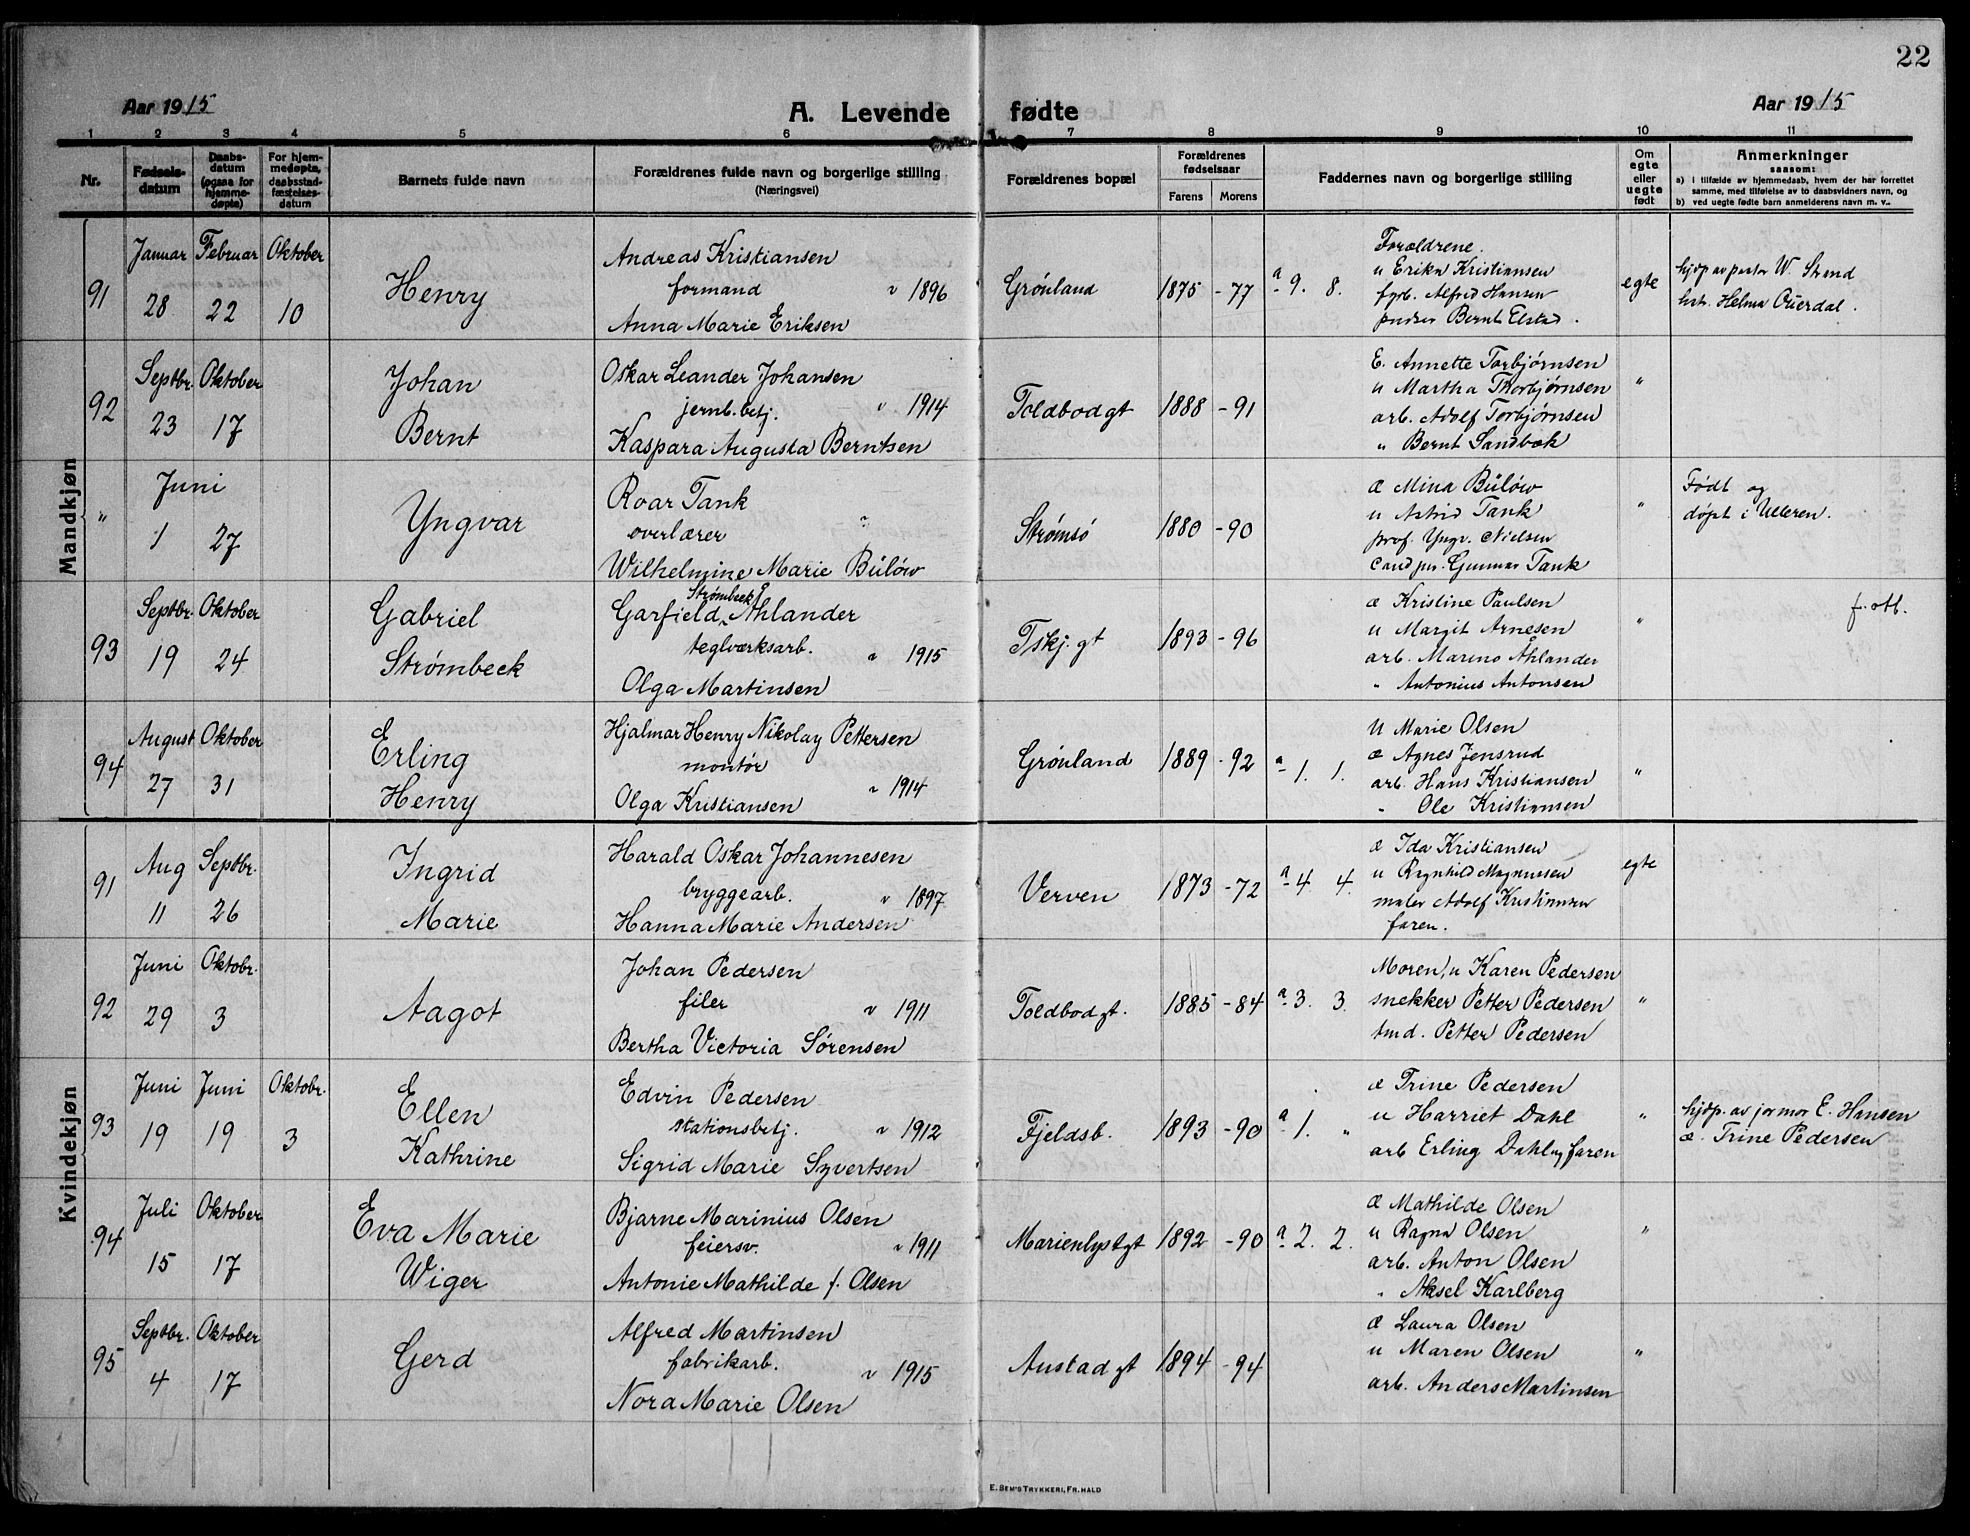 22
Aar 1915
A. Levende fødte
Aar 1915
1 2 3 4 5 6 7 8 9 10 11
Nr.
Fødsels-
datum
Daabs-
datum
(ogsaa for
hjemme-
døpte)
For hjem-
medøpte,
daabsstad-
fæstelses-
datum
Barnets fulde navn
Forældrenes fulde navn og borgerlige stilling
(Næringsvei)
Forældrenes bopæl
Forældrenes
fødselsaar
Farens Morens
Faddernes navn og borgerlige stilling
Om
egte
eller
uegte
født
Anmerkninger
saasom:
a) i tilfælde av hjemmedaab, hvem der har forrettet
samme, med tilføielse av to daabsvidners navn, og
b) ved uegte fødte barn anmelderens navn m. v..
Mandkjøn
91
Januar Februar Oktober
28 22 10
Henry
Andreas Kristiansen
formand " 1896
Anna Marie Eriksen
Grønland
1875 - 77
a 9. 8.
Forældrene.
u Erika Kristiansen
fyrb. Alfred Hansen
Bernt Elstad.
egte
hjdp av pastor W.
Helma Ouerdal.
92
Septbr. Oktober
23 17
Johan
Bernt
Oskar Leander Johansen
jernb.betj. " 1914
Kaspara Augusta Berntsen
Toldbodgt
1888 - 91
E. Annette Torbjørnsen
u Martha Thorbjørnsen
arb. Adolf Torbjørnsen
" Bernt Sandbæk
"
"
Juni
1 27
Yngvar
Roar Tank
overlærer "
Wilhelmine Marie Bülow
Strømsö
1880 - 90
æ Mina Bülow
u Astrid Tank
prof. Yngv. Nielsen
Cand jur. Gunnar Tank
"
Født og
døpt i Ulleren.
93
Septbr. Oktober
19 24
Gabriel
Strømbeck
Strømbeck
Garfield Åhlander
teglværksarb. " 1915
Olga Martinsen
Tskj. gt
1893 - 96
æ Kristine Paulsen
u Margit Arnesen
arb. Mareno Åhlander
" Antonius Antonsen
"
f. att.
94
August Oktober
27 31
Erling
Henry
Hjalmar Henry Nikolay Pettersen
montør " 1914
Olga Kristiansen
Grønland
1889 - 92
a 1. 1.
U Marie Olsen
æ Agnes Jensrud
arb. Hans Kristiansen
" Ole Kristiansen
"
Kvindekjøn
91
Aug Septbr.
11 26
Ingrid
Marie
Harald Oskar Johannesen
bryggearb. " 1897
Hanna Marie Andersen
Verven
1873 - 72
a 4. 4.
æ Ida Kristiansen
u Ragnhild Magnussen
maler Adolf Kristiansen
faren.
egte
92
Juni Oktobr.
29 3
Aagot
Johan Pedersen
filer " 1911
Bertha Victoria Sørensen
Toldbodgt.
1885 - 84
a 3. 3.
Moren, u Karen Pedersen
snekker Petter Pedersen
tmd. Petter Pedersen
"
93
Juni Juni Oktobr.
19 19 3
Ellen
Kathrine
Edvin Pedersen
stationsbetj. " 1912
Sigrid Marie Syvertsen
Fjeldsb.
1893 - 90
a 1. "
æ Trine Pedersen
u Harriet Dahl
arb Erling Dahl og faren
"
hjdp. av jormor E. Hansen
æ. Trine Pedersen
94
Juli Oktober
15 17
Eva Marie
Wiger
Bjarne Marinius Olsen
feiersv. " 1911
Antonie Mathilde f. Olsen
Marienlystgt
1892 - 90
a 2. 2.
æ Mathilde Olsen
u Ragna Olsen
arb. Anton Olsen
" Aksel Karlberg
"
95
Septbr. Oktober
4 17
Gerd
Alfred Martinsen
fabrikarb. " 1915
Nora Marie Olsen
Austad gt
1894 - 94
æ Laura Olsen
u Maren Olsen
arb. Anders Martinsen
"
E. SEM'S TRYKKERI, FR.HALD